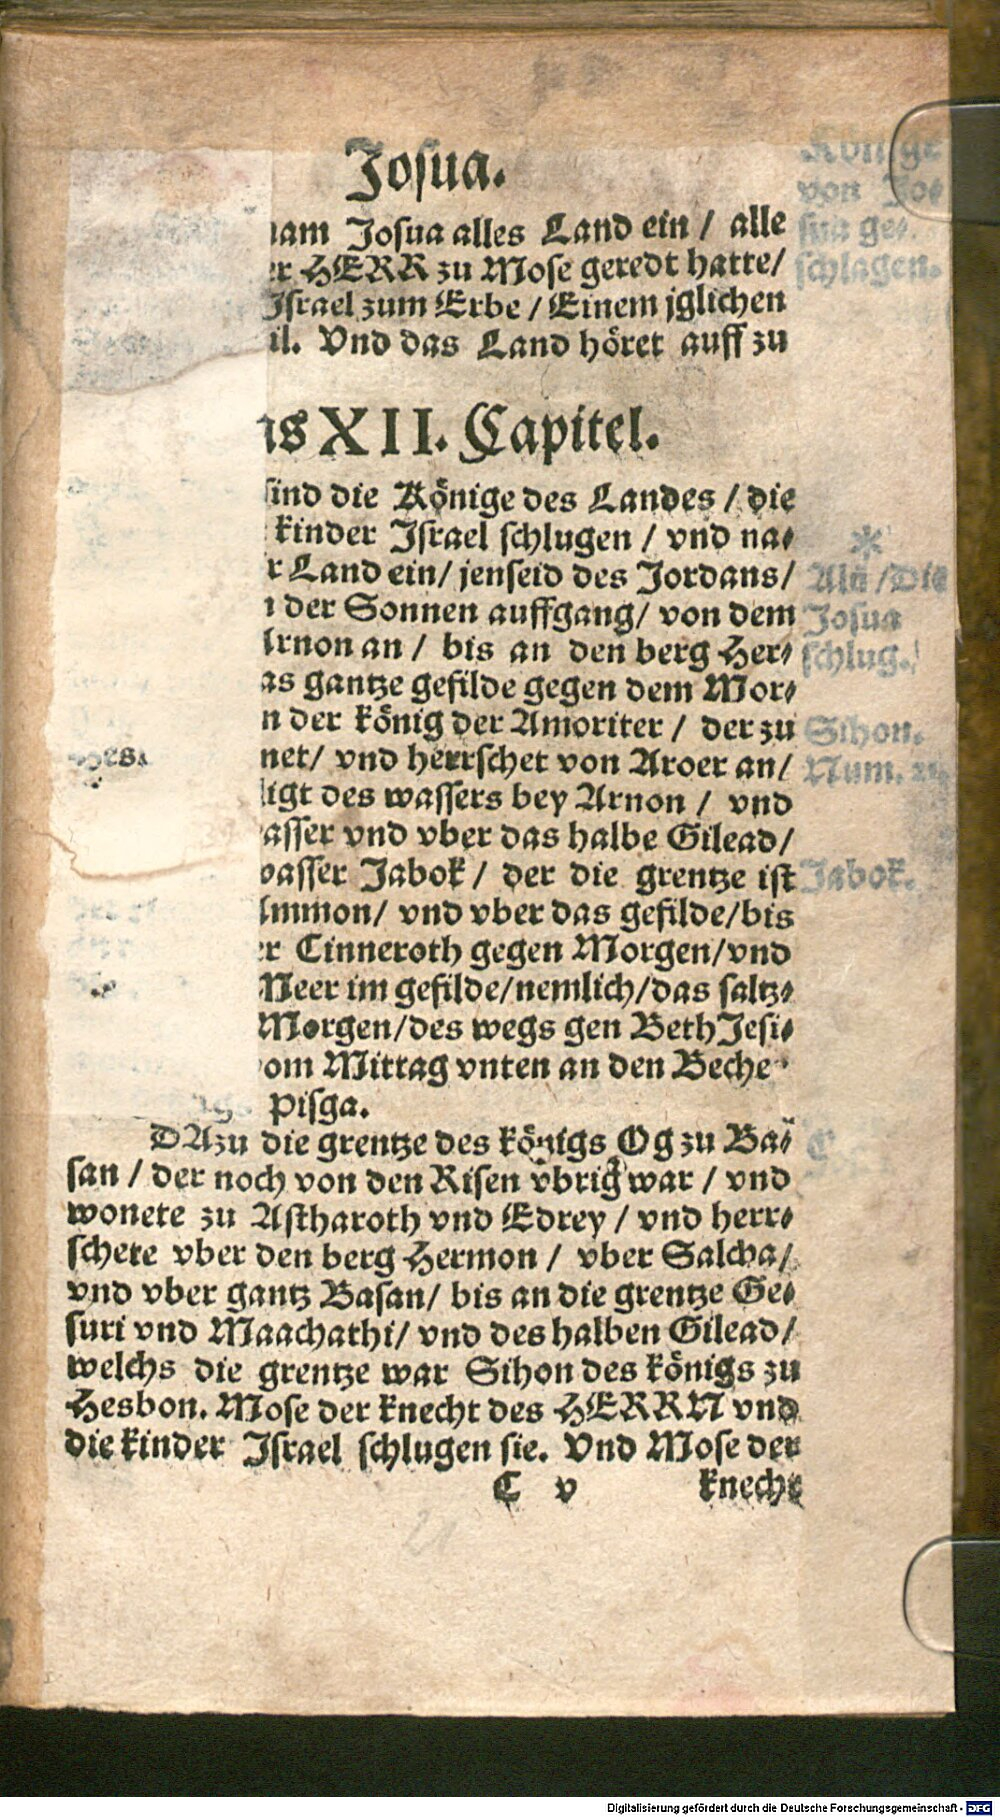 Josua.
nam Josua alles Land ein / alle
er HERR zu Mose geredt hatte/
Israel zum Erbe / Einem jglichen
il. Vnd das Land höret auff zu
Könige
von Jo⸗
sua ge⸗
schlagen.
as XII. Capitel.
sind die Könige des Landes / die
kinder Israel schlugen / vnd na⸗
r Land ein/ jenseid des Jordans/
n der Sonnen auffgang/ von dem
Arnon an / bis an den berg Her⸗
as gantze gefilde gegen dem Mor⸗
n der könig der Amoriter / der zu
net/ vnd herrschet von Aroer an/
ligt des wassers bey Arnon / vnd
asser vnd vber das halbe Gilead/
wasser Jabok / der die grentze ist
Ammon/ vnd vber das gefilde/bis
er Cinneroth gegen Morgen/vnd
Meer im gefilde/nemlich/das saltz⸗
Morgen/des wegs gen BethJesi⸗
om Mittag vnten an den Beche
Pisga.
*
/Die
Josua
schlug.
Sihon.
Num. 21.
Jabok.
Hes⸗
DAzu die grentze des königs Og zu Ba⸗
san / der noch von den Risen vbrig war / vnd
wonete zu Astharoth vnd Edrey / vnd herr⸗
schete vber den berg Hermon / vber Salcha/
vnd vber gantz Basan/ bis an die grentze Ge⸗
suri vnd Maachathi/ vnd des halben Gilead/
welchs die grentze war Sihon des königs zu
Hesbon. Mose der knecht des HERRN vnd
die kinder Israel schlugen sie. Vnd Mose der
C v knecht
21
Digitalisierung gefördert durch die Deutsche Forschungsgemeinschaft - DFG